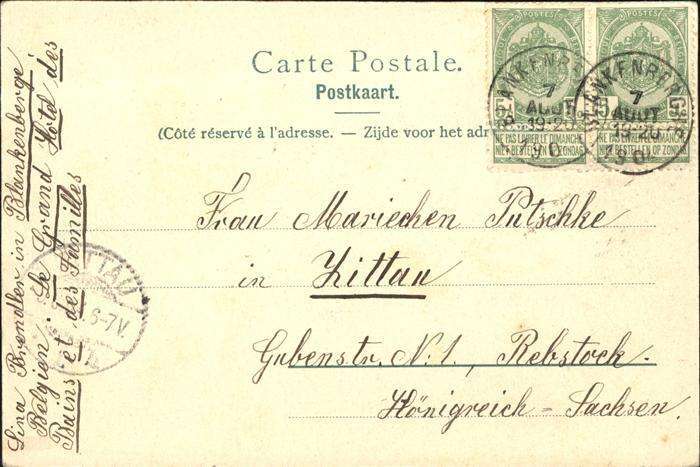 Carte Postale.
Postkaart.
(Côté réservé à l'adresse. — Zijde voor het adr
POSTES
5 5
NE PAS LIVRER LE DIMANCHE
NIET BESTELLEN OP ZONDAG
NE PAS LIVRER LE DIMANCHE
NIET BESTELLEN OP ZONDAG
BLANKENBERGHE
7
AOUT
19-20
190
BLANKENBERGHE
7
AOUT
19-20
190
Frau Mariechen Putschke
in Zittau
Gubenstr. N. 1., Rebstock.
Königreich - Sachsen.
Lina Brendler in Blankenberge
Belgien. Le Grand Hôtel des
Bains et des Familles
ZITTAU
6-7V.